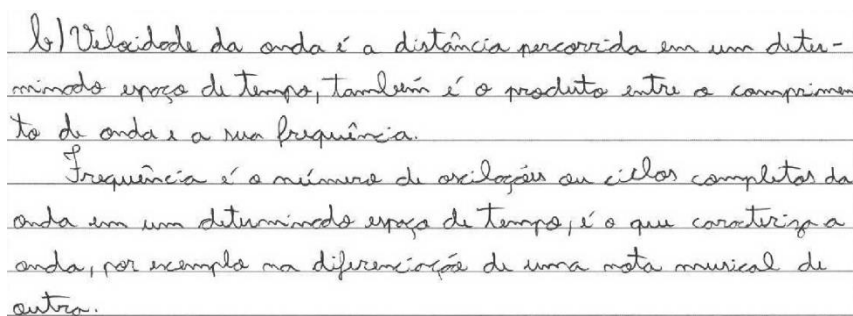 b) Velocidade da onda é a distância percorrida em um deter-
minado espaço de tempo, também é o produto entre o comprimen
to de onda e a sua frequência.
Frequência é o número de oscilações ou ciclos completos da
onda em um determinado espaço de tempo, é o que caracteriza a
onda, por exemplo na diferenciação de uma nota musical de
outra.